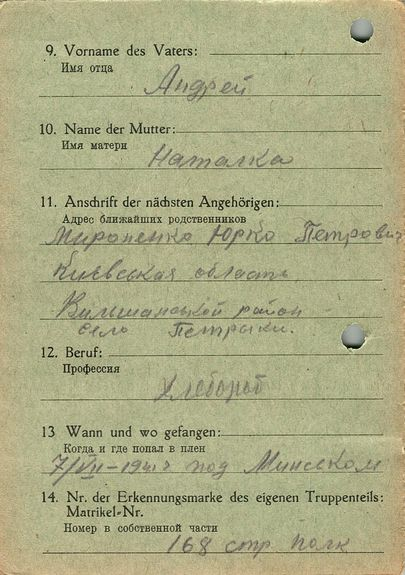 9. Vorname des Vaters:
Имя отца
Андрей
10. Name der Mutter:
Имя матери
Наталка
11. Anschrift der nächsten Angehörigen:
Адрес ближайших родственников
Мироненко Юрко Петрович
Киевская область
Вильшанськой район
село Петрыки.
12. Beruf:
Профессия
Хлебороб
13 Wann und wo gefangen:
Когда и где попал в плен
7/VII-1941 г под Минском
14. Nr. der Erkennungsmarke des eigenen Truppenteils:
Matrikel-Nr.
Номер в собственной части
168 стр полк